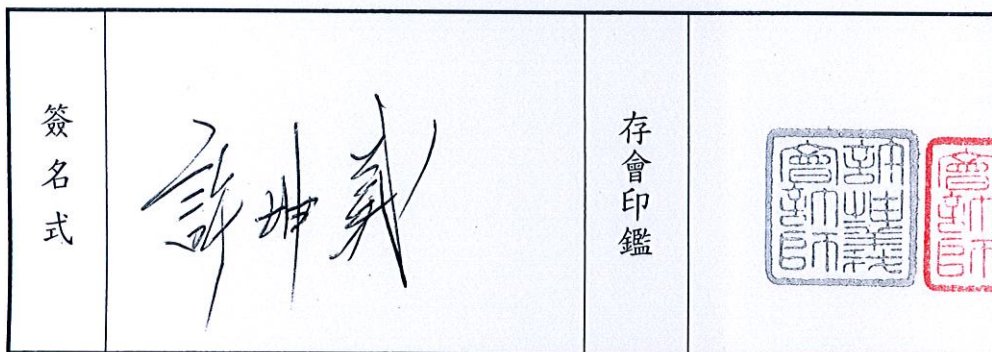 簽名式
許坤義
存會印鑑
許坤義
會計師
會計師